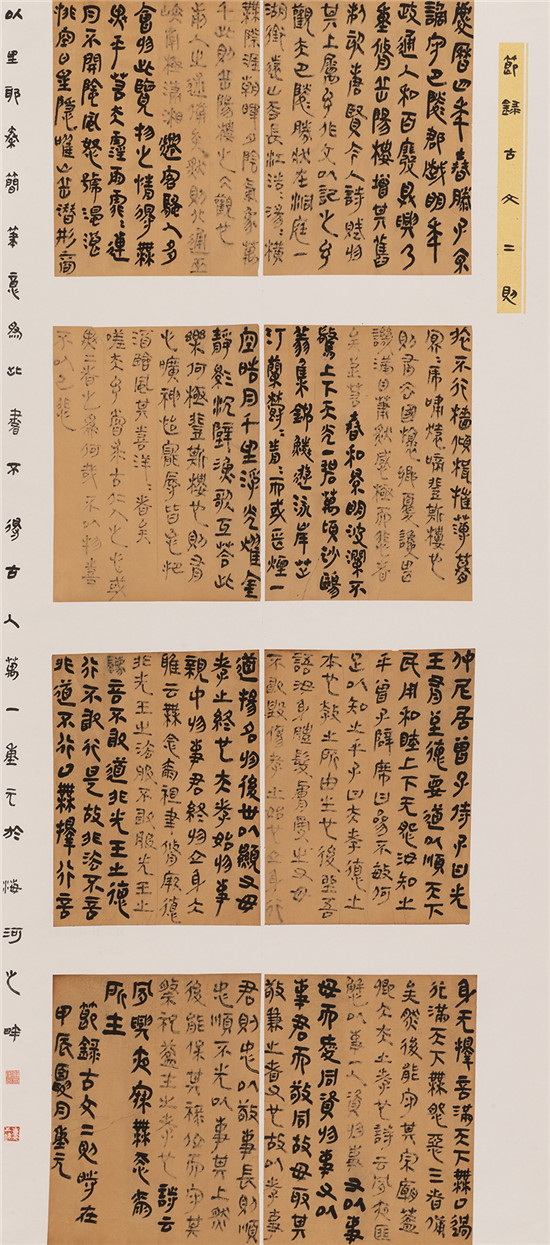 節錄古文二則
慶曆四年春滕子京
謫守巴陵郡越明年
政通人和百廢具興乃
重脩岳陽樓增其舊
制刻唐賢今人詩賦於
其上屬予作文以記之予
觀夫巴陵勝狀在洞庭一
湖銜遠山吞長江浩浩湯湯橫
無際涯朝暉夕陰氣象萬
千此則岳陽樓之大觀也
前人之述備矣然則北通巫
峽南極瀟湘遷客騷人多
會於此覽物之情得無
異乎若夫霪雨霏霏連
月不開陰風怒號濁浪
排空日星隱曜山岳潛形商
旅不行檣傾楫摧薄暮
冥冥虎嘯猿啼登斯樓也
則有去國懷鄉憂讒畏
譏滿目蕭然感極而悲者
矣至若春和景明波瀾不
驚上下天光一碧萬頃沙鷗
翔集錦鱗游泳岸芷
汀蘭郁郁青青而或長煙一
空皓月千里浮光耀金
靜影沉璧漁歌互答此
樂何極登斯樓也則有
心曠神怡寵辱皆忘把
酒臨風其喜洋洋者矣
嗟夫予嘗求古仁人之心或
異二者之為何哉不以物喜
不以己悲
仲尼居曾子侍子曰先
王有至德要道以順天下
民用和睦上下無怨汝知之
乎曾子辟席曰參不敏何
足以知之乎子曰夫孝德之
本也教之所由生也復坐吾
語汝身體髮膚受之父母
不敢毀傷孝之始也立身行
道揚名於後世以顯父母
孝之終也夫孝始於事
親中於事君終於立身大
雅云無念爾祖聿脩厥德
非先王之法服不敢服先王之
法言不敢道非先王之德
行不敢行是故非法不言
非道不行口無擇行言
身無擇言滿天下無口過
行滿天下無怨惡三者備
矣然後能守其宗廟蓋
卿大夫之孝也詩云夙夜匪
懈以事一人資於事父以事
母而愛同資於事父以
事君而敬同故母取其
敬兼之者父也故以孝事
君則忠以敬事長則順
忠順不失以事其上然
後能保其祿位而守其
祭祀蓋士之孝也詩云
夙興夜寐無忝爾
所生
節錄古文二則時在
甲辰夏月重元
以里耶秦簡筆意為此書不得古人萬一重元於海河之畔